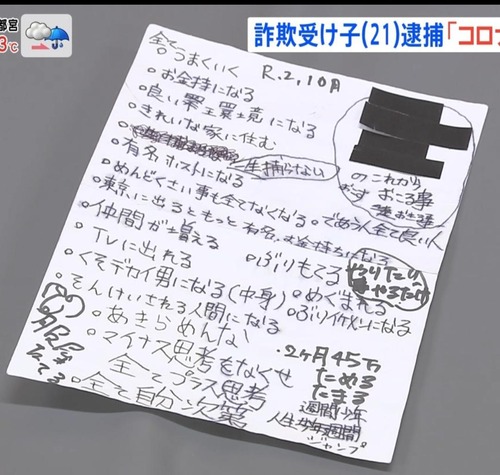 都宮
3℃
詐欺受け子(21)逮捕「コロナ
全て
・うまくいく
R.2,10月
・お金持になる
・良い環境になる
・きれいな家に住む
一生捕らない
・有名ホストになる
のこれから
おこる事
・めんどくさい事も全てなくなる
・であう人全て良い人
・東京に出るともっと有名、お金持ちになる
・仲間が増える
・TVに出れる
・ぶりもてる
やりたい
・くそデカイ男になる(中身)
・めぐまれる
・そんけいされる人間になる
・ぶりイケメンになる
・あきらめんな
・マイナス思考をなくせ
・2ヶ月45万
ためる
たまる
全てプラス思考
・全て自分次第
週間少年
人生
週間
ジャンプ